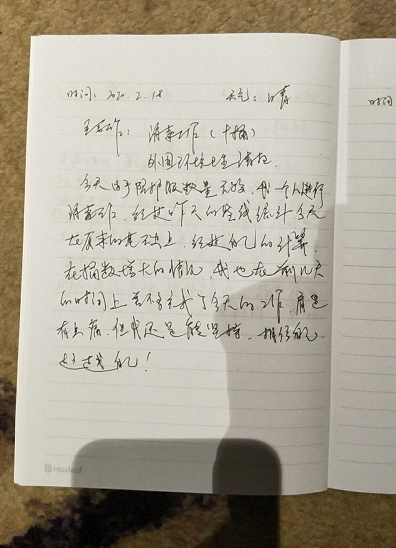 时间：2020.2.18 天气：晴
时间
主要工作：消毒工作（十桶）
外围环境卫生清扫
今天由于防护服数量不够，我一个人进行
消毒工作。经过昨天的路线统计今天
在原来的基础上，经过自己的计算，
在桶数增大的情况，我也在前几天
的时间上差不多完成了今天的工作，肩还
有点痛，但我还是能坚持，相信自己，
超越自己！
Maxleaf